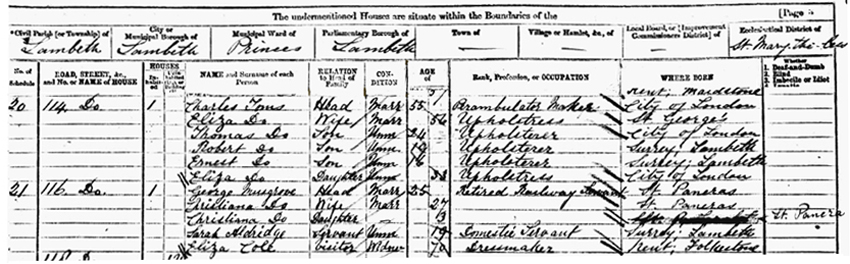 The undermentioned Houses are situate within the Boundaries of the [Page
*Civil Parish [or Township] of City or Municipal Borough of Municipal Ward of Parliamentary Borough of Town of Village or Hamlet, &c., of Local Board, or [Improvement Commissioners District] of Ecclesiastical District of
Lambeth Lambeth Princes Lambeth St Mary the Less
No. of Schedule ROAD, STREET, &c., and No. or NAME of HOUSE HOUSES NAME and Surname of each Person RELATION to Head of Family CONDITION AGE of Rank, Profession, or OCCUPATION WHERE BORN If (1) Deaf-and-Dumb (2) Blind (3) Imbecile or Idiot (4) Lunatic
Kent, Maidstone
20 114 Do 1 Charles Tons Head Marr 55 Perambulator Maker City of London
Eliza Do Wife Marr 56 Upholstress St George's
Thomas Do Son Unm 24 Upholsterer City of London
Robert Do Son Unm 19 Upholsterer Surrey, Lambeth
Ernest Do Son Unm 16 Upholsterer Surrey, Lambeth
Eliza Do Daughter Unm Upholstress City of London
21 116 Do 1 George Musgrove Head Marr 25 Retired Railway Servant St Pancras
Christiana Do Wife Marr 27 St Pancras
Christiana Do Daughter 3 St Pancra
Sarah Aldridge Servant Unm 19 Domestic Servant Surrey, Lambeth
Eliza Cole Visitor Widow 70 Dressmaker Kent, Folkestone
118 Do